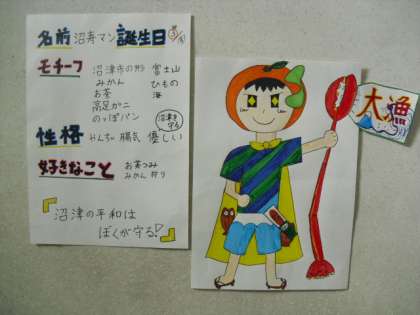 名前 沼寿マン 誕生日
モチーフ 沼津市の形 富士山
みかん ひもの
お茶 海
高足ガニ
のっぽパン
沼津を守る
性格 やんちゃ 陽気 優しい
好きなこと お茶つみ
みかん狩り
『沼津の平和は
ぼくが守る!』
大漁